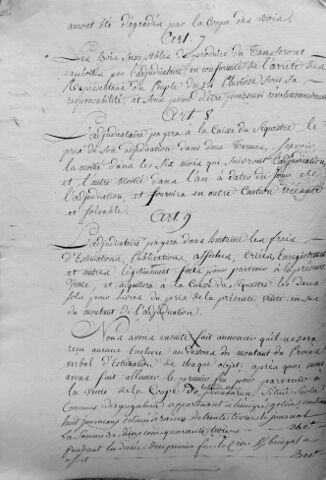 auront été dégradés par la Coupe des Bois.
Art. 7
Les Bois susceptibles de produire du Tan seront
exploités par l'adjudicataire en conformité de l'arrêté des
Représentans du Peuple du 14 Pluviose sous sa
responsabilité, et sous peine d'être poursuivi révolutionnairement
Art 8
L'adjudicataire payera à la Caisse du Séquestre le
prix de son adjudication dans deux Termes, Savoir
la moitié dans les Six mois qui suivront l'adjudication
et l'autre moitié dans l'an à dater du jour de
l'adjudication, et fournira en outre Caution recevante
et solvable.
Art 9
L'adjudicataire payera dans huitaine les frais
d'Estimations, Publications, affiches, Criées, Enregistrement
et autres légitimement faits pour parvenir à la présente
Vente, et acquitera à la Caisse du Séquestre les deux
Sols pour Livres du prix de la présente vente en sus
du montant de l'adjudication.
Nous avons ensuite fait annoncer qu'il ne sera
reçu aucune Enchere au dessous du montant du Procès
verbal d'Estimation de chaque objet, après quoi nous
avons fait allumer le premier feu pour parvenir à
la vente de la Coupe de
Commune appartenant à l'émigré
huit journaux
la Somme de deux cent quarante livres 240
Pendant la durée du premier feu le Cen
offert